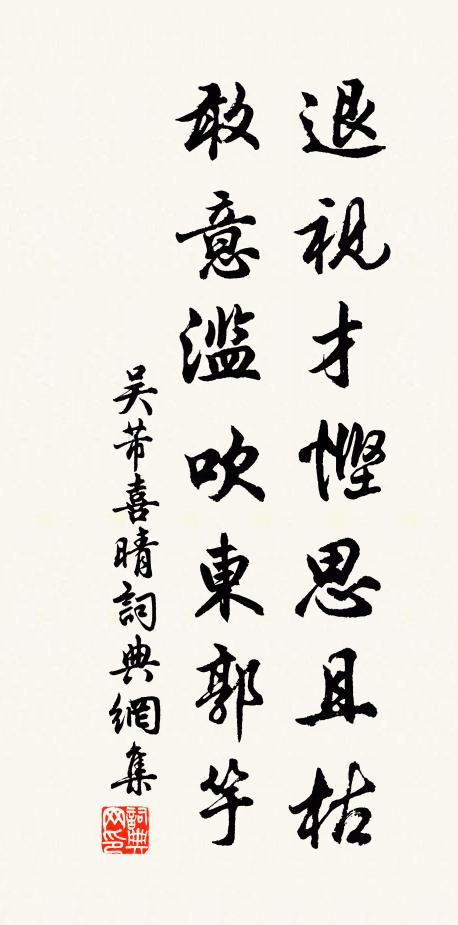 退視才慳思且枯
敢意濫吹東郭竽
吴芾喜晴詞典網集
詞典
网印